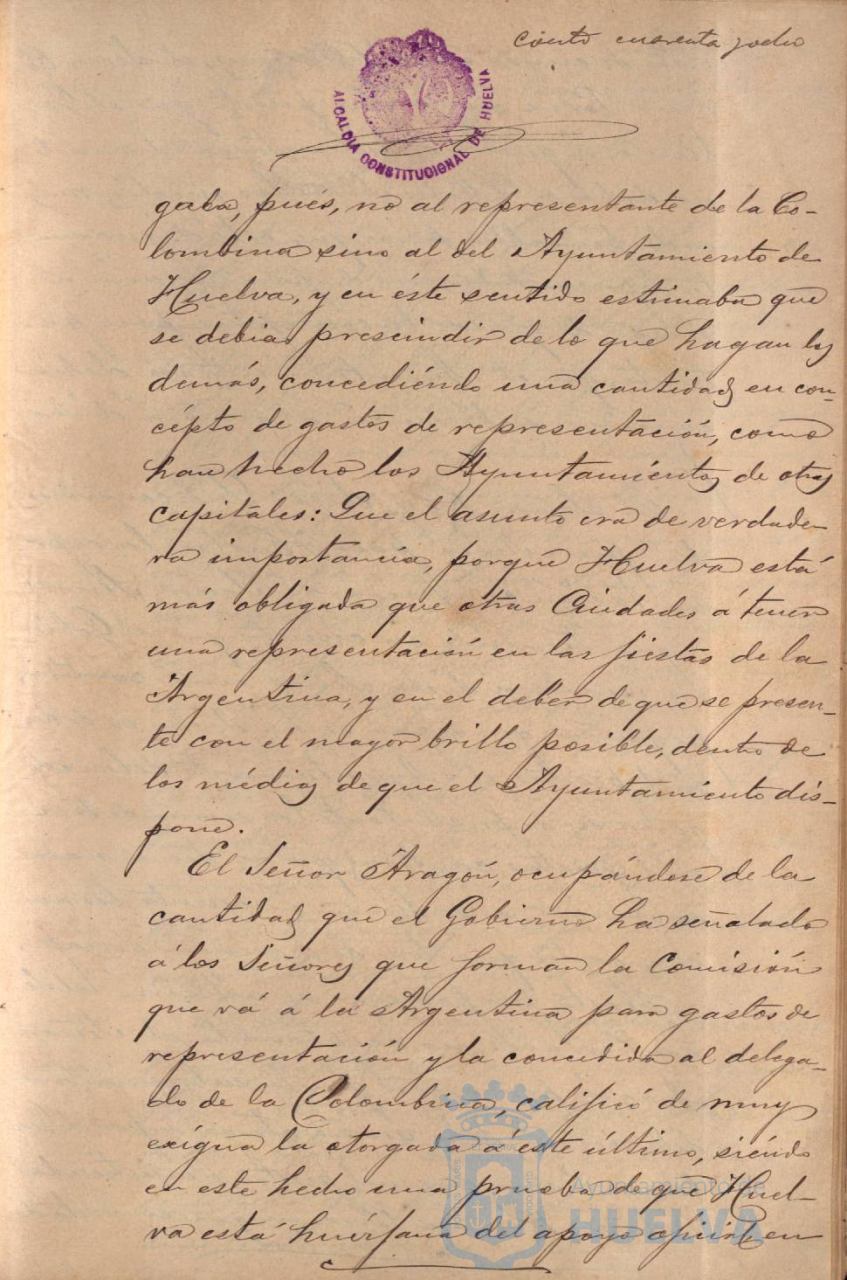 ciento cuarenta y ocho
ALCALDIA CONSTITUCIONAL DE HUELVA
gaba, pués, no al representante de la Co-
lombina sino al del Ayuntamiento de
Huelva, y en éste sentido estimaba que
se debia prescindir de lo que hagan los
demás, concediéndo una cantidad en con-
cépto de gastos de representación, como
han hecho los Ayuntamientos de otras
capitales: Que el asunto era de verdade-
ra importancia, porque Huelva está
más obligada que otras Ciudades á tener
una representación en las fiestas de la
Argentina, y en el deber de que se presen-
te con el mayor brillo posible, dentro de
los médios de que el Ayuntamiento dis-
pone.
El Señor Aragón, ocupándose de la
cantidad que el Gobierno ha señalado
á los Señores que forman la Comisión
que vá á la Argentina para gastos de
representación y la concedida al delega-
do de la Colombina, calificó de muy
exígua la otorgada á este último, siéndo
en este hecho una prueba de que Huel-
va está huérfana del apoyo oficial en
Ayuntamiento de
HUELVA